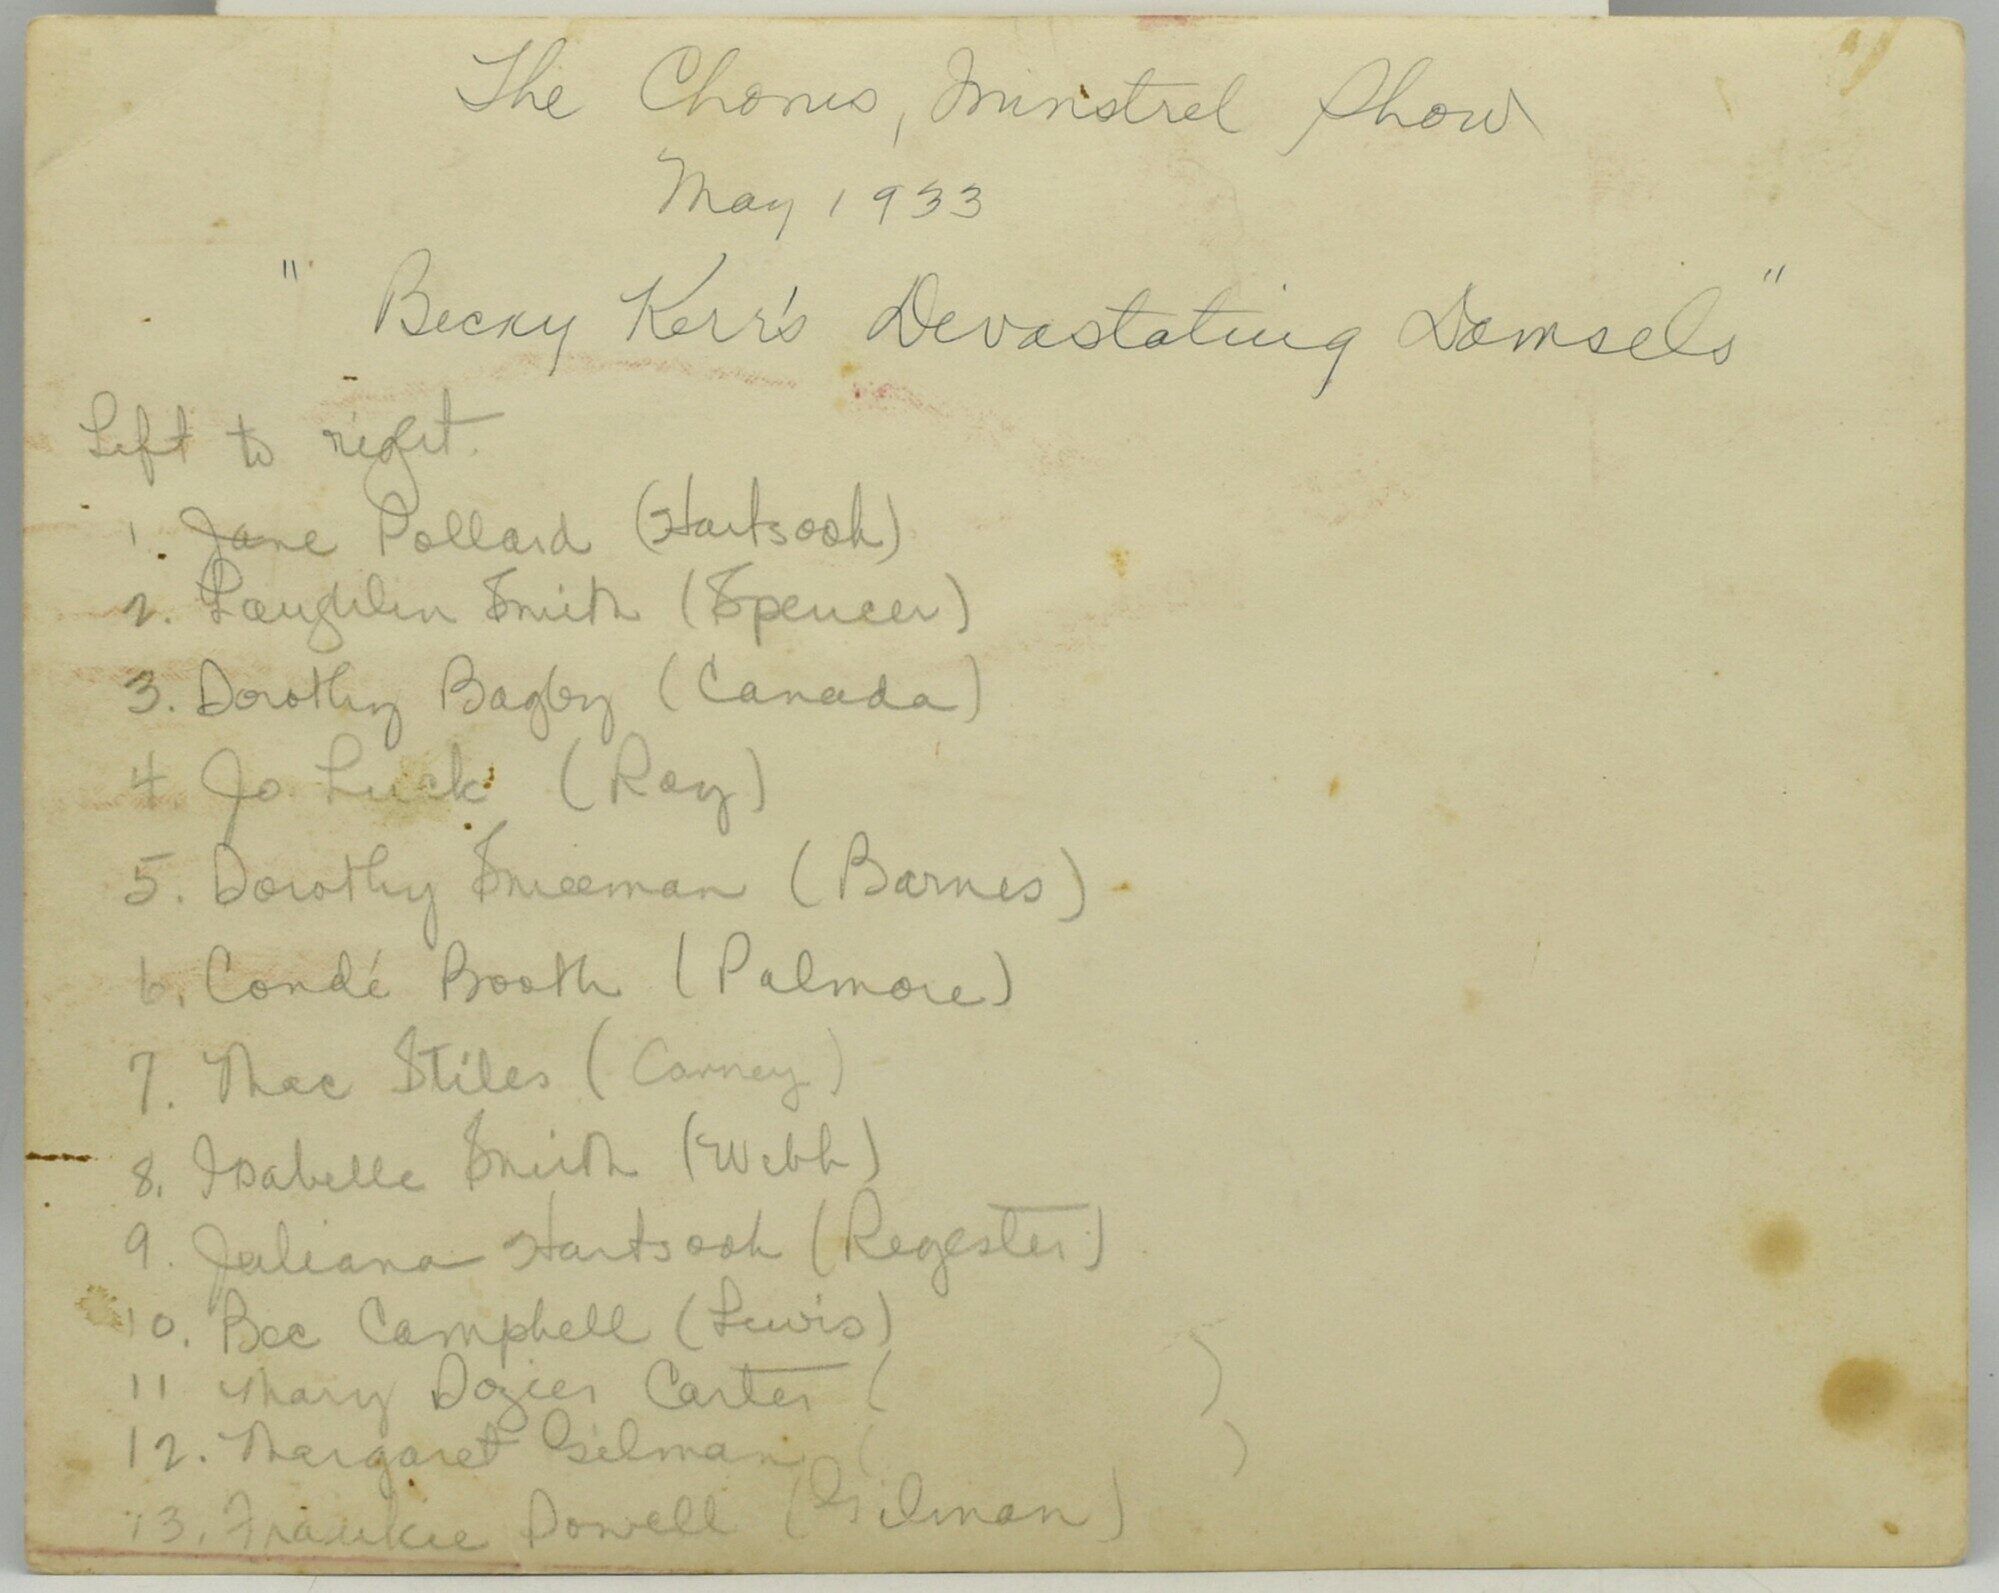 The Chorus, Minstrel Show
May 1933
" Becky Kerr's Devastating Damsels "
Left to right.
1. Jane Pollard (Hartsook)
2. Laughlin Smith (Spencer)
3. Dorothy Bagby (Canada)
4 Jo Luck (Ray)
5. Dorothy Smieeman (Barnes)
6. Condé Booth (Palmore)
7. Mac Stiles (Carney)
8. Isabelle Smith (Webb)
9. Juliana Hartsook (Regester)
10. Bee Campbell (Lewis)
11 Mary Dozier Carter ( )
12. Margaret Gilman ( )
13. Frankie Dowell (Gilman)